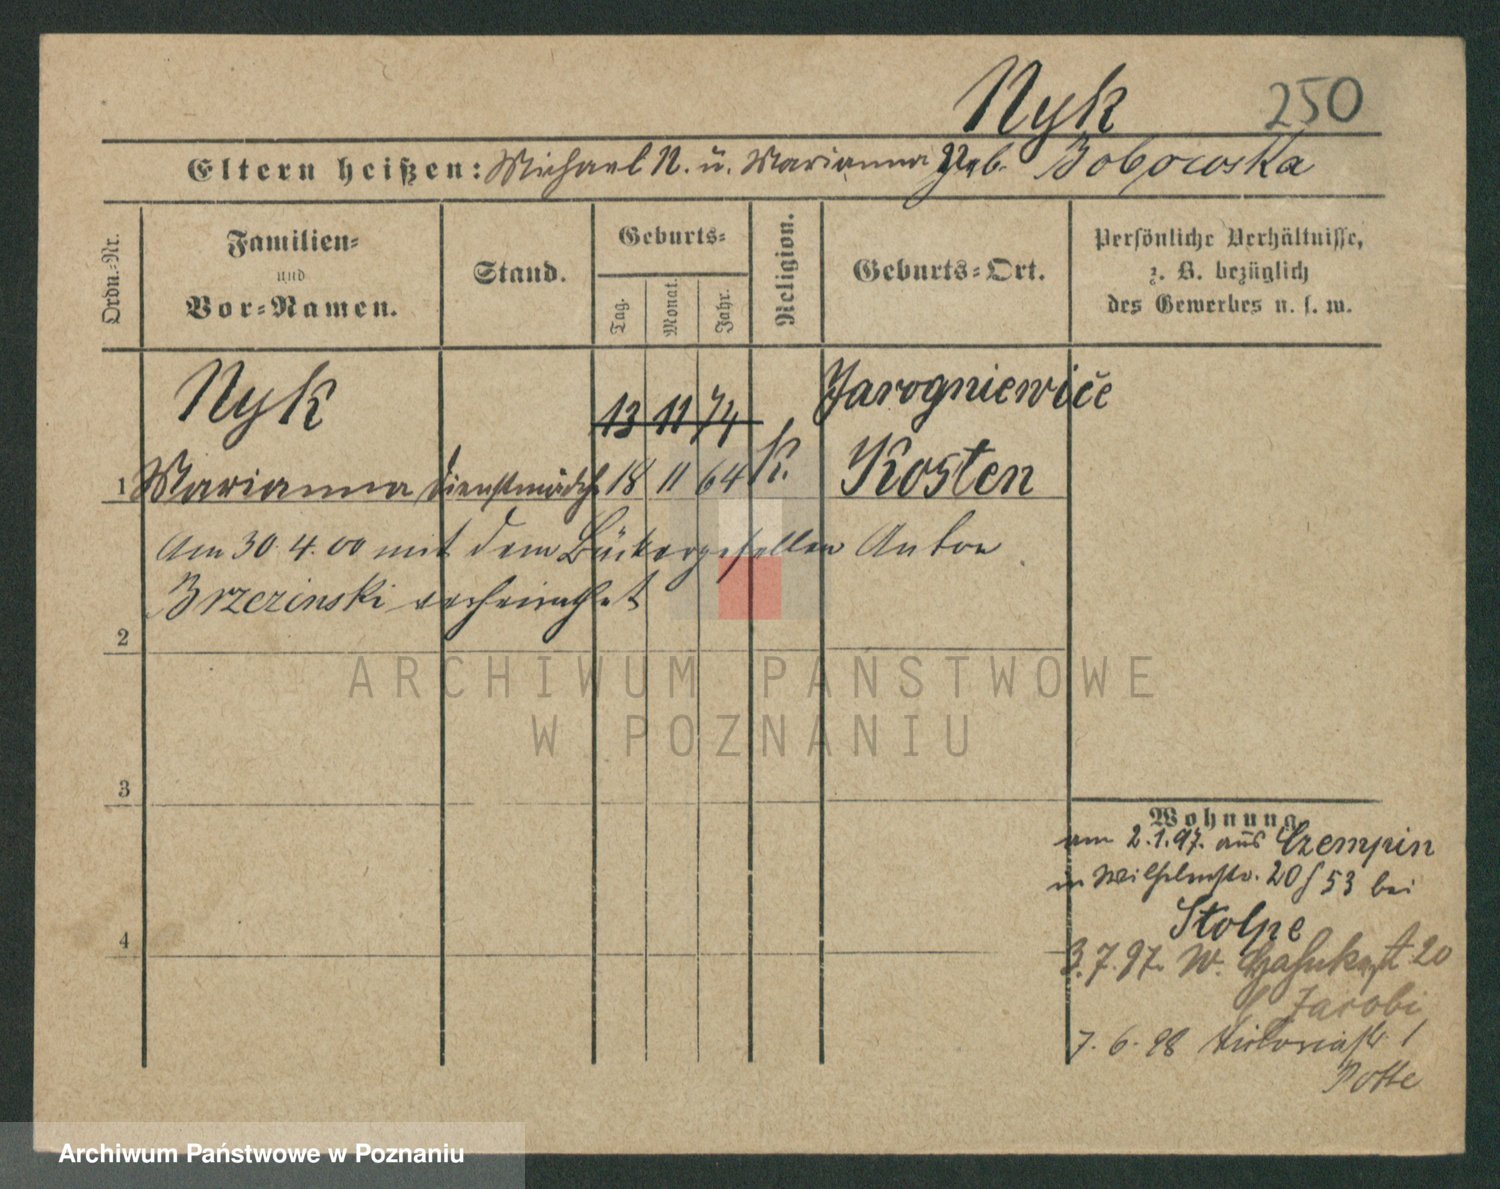 Nyk 250
Eltern heißen: Michael N. u. Marianna geb. Bobrowska
Ordn.-Nr.
Familien-
und
Vor-Namen.
Stand.
Geburts-
Tag.
Monat.
Jahr.
Religion.
Geburts-Ort.
Persönliche Verhältnisse,
z. B. bezüglich
des Gewerbes u. s. w.
Nyk 13 11 74 Jarogniewice
1 Marianna Dienstmädch 18 11 64 K. Kosten
Am 30.4.00 mit dem Bäckergesellen Anton
Brzezinski verheirathet
2
3
4
Wohnung
am 2.1.97. aus Czempin
in Wilhelmstr. 20 53 bei
Stolpe
3.7.97. W. 20
Jacobi
7.6.98 Victoriastr. 1
Potte
ARCHIWUM PAŃSTWOWE
W POZNANIU
Archiwum Państwowe w Poznaniu